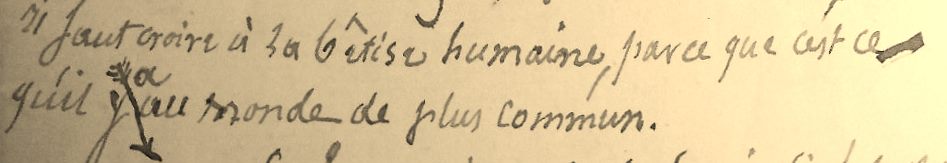 il faut croire à la bêtise humaine, parce que c'est ce
qu'il y a au monde de plus commun.